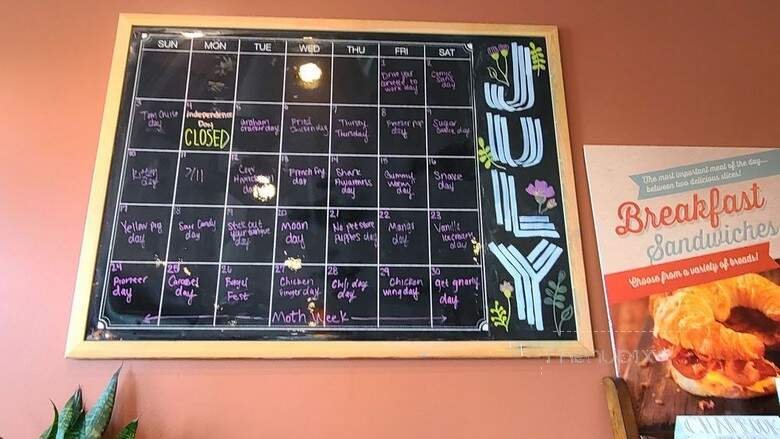 SUN MON TUE WED THU FRI SAT
1 2
Drive your
corvette to
work day
Comic
Sans
day
3 4 5 6 7 8 9
Tom Cruise
day
Independence
Day
CLOSED
Graham
cracker day
Fried
chicken day
Thirsty
Thursday
Freezer pop
day
Sugar
cookie day
10 11 12 13 14 15 16
Kitten
day
7/11
Cow
day
French fry
day
Shark
Awareness
day
Gummy
Worm
day
Snake
day
17 18 19 20 21 22 23
Yellow pig
day
Sour Candy
day
Stick out
your tongue
day
Moon
day
No pet store
puppies day
Mango
day
Vanilla
Icecream
day
24 25 26 27 28 29 30
Pioneer
day
Carousel
day
Bagel
Fest
Chicken
finger day
Chili dog
day
Chicken
wing day
get gnarly
day
Moth Week
JULY
The most important meal of the day...
between two delicious slices!
Breakfast
Sandwiches
Choose from a variety of breads!